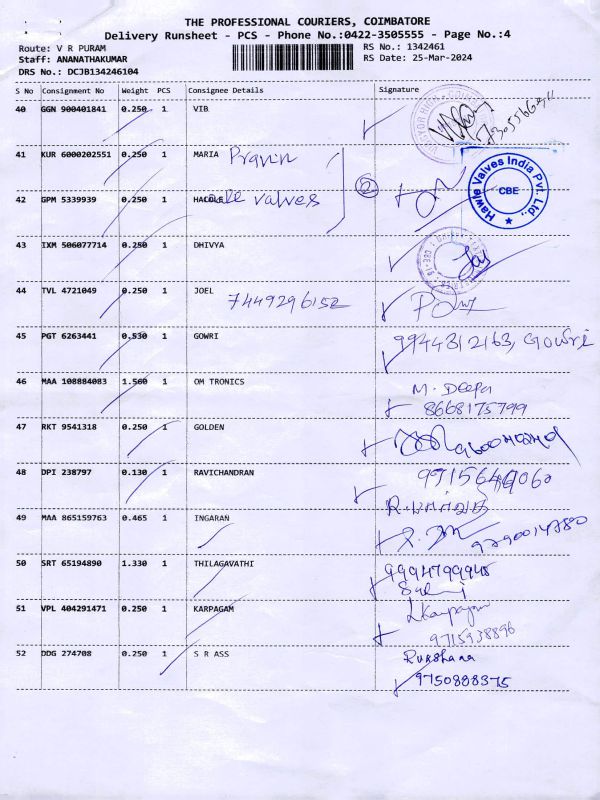 THE PROFESSIONAL COURIERS, COIMBATORE
Delivery Runsheet - PCS - Phone No.:0422-3505555 - Page No.:4
Route: V R PURAM
Staff: ANANATHAKUMAR
DRS No.: DCJB134246104
RS No.: 1342461
RS Date: 25-Mar-2024
S No Consignment No Weight PCS Consignee Details Signature
40 GGN 900401841 0.250 1 VIB
41 KUR 6000202551 0.250 1 MARIA Pravin
Hawle Valves India Pvt. Ltd.,
CBE
42 GPM 5339939 0.250 1 valves 2
43 IXM 506077714 0.250 1 DHIVYA
44 TVL 4721049 0.250 1 JOEL 7449296152
45 PGT 6263441 0.530 1 GOWRI 9944312163, Gowri
46 MAA 108884083 1.560 1 OM TRONICS M. Deepa
8668175799
47 RKT 9541318 0.250 1 GOLDEN
48 DPI 238797 0.130 1 RAVICHANDRAN
49 MAA 865159763 0.465 1 INGARAN
50 SRT 65194890 1.330 1 THILAGAVATHI
51 VPL 404291471 0.250 1 KARPAGAM
9715938896
52 DDG 274708 0.250 1 S R ASS Rukshana
9750888375